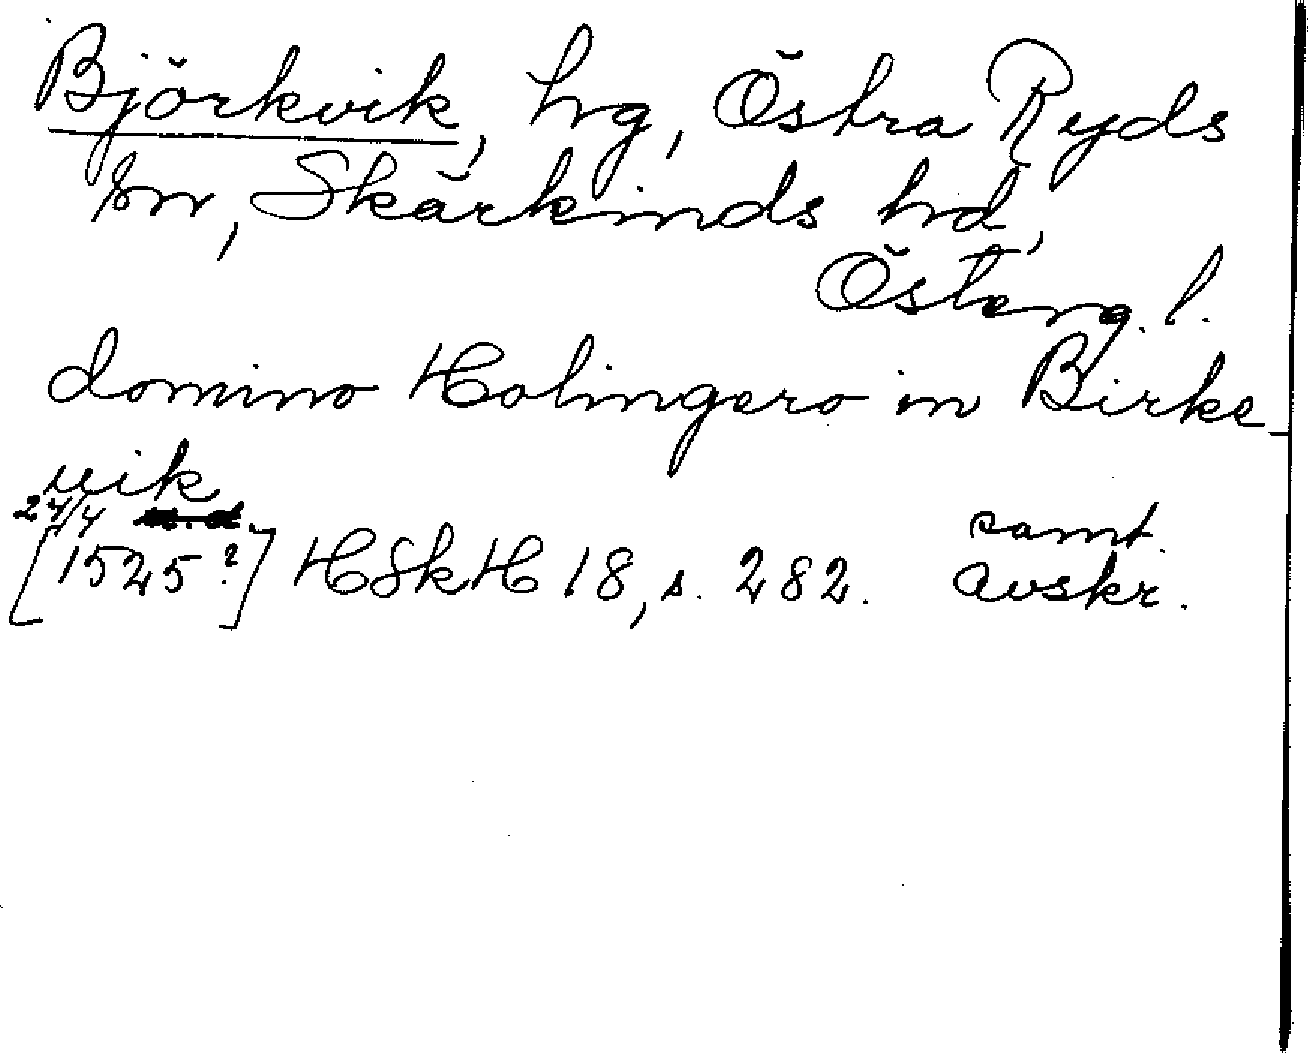 Björkvik, hg, Östra Ryds
sn, Skärkinds hd,
Österg. l.
domino Holingero in Birke-
uik
24/4
[1525?] HSkH 18, s. 282. samt.
avskr.